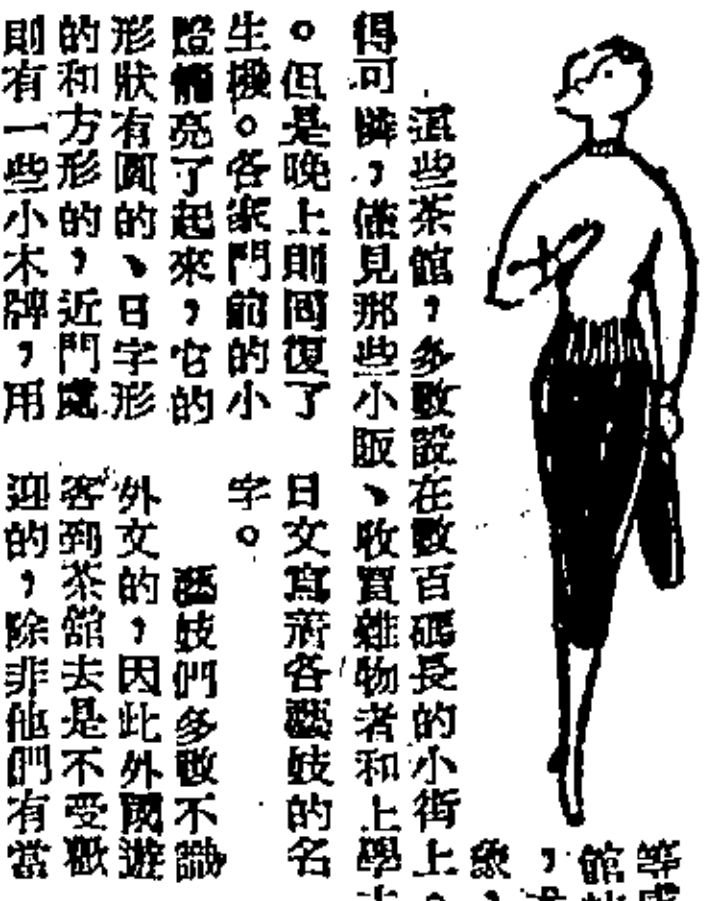 等
館
，
象，
這些茶館，多數設在數百碼長的小街上。
得可憐，僅見那些小販、收買雜物者和上學
。但是晚上則回復了
生機。各家門前的小
燈籠亮了起來，它的
形狀有圓的、日字形
的和方形的，近門處
則有一些小木牌，用
日文寫着各藝妓的名
字。
藝妓們多數不識
外文的，因此外國遊
客到茶館去是不受歡
迎的，除非他們有當